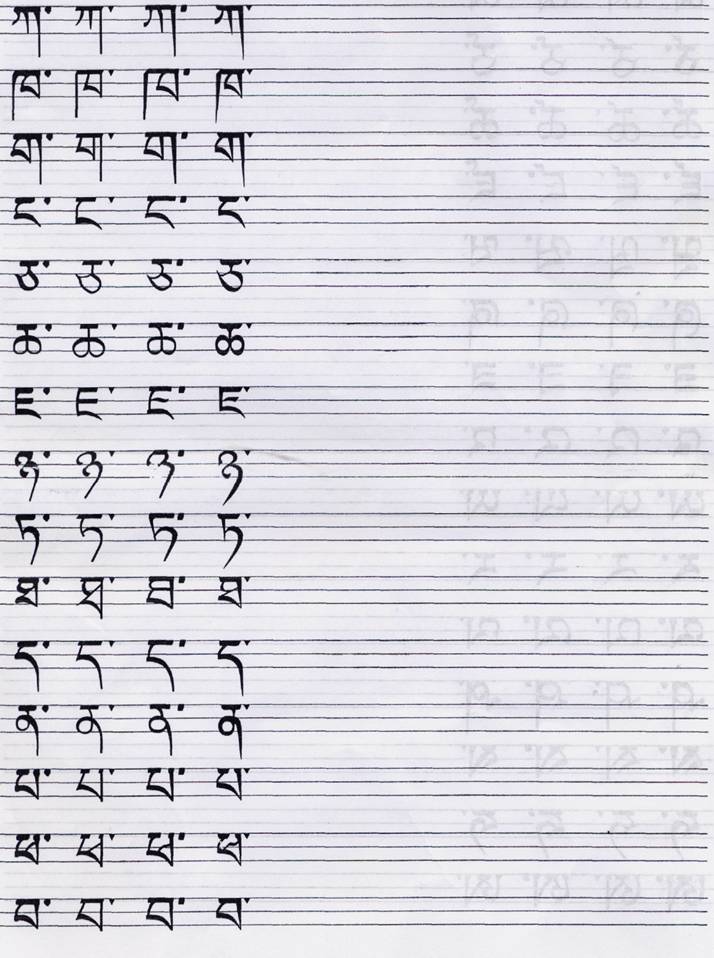 ཀ་ ཀ་ ཀ་ ཀ་
ཁ་ ཁ་ ཁ་ ཁ་
ག་ ག་ ག་ ག་
ང་ ང་ ང་ ང་
ཅ་ ཅ་ ཅ་ ཅ་
ཆ་ ཆ་ ཆ་ ཆ་
ཇ་ ཇ་ ཇ་ ཇ་
ཉ་ ཉ་ ཉ་ ཉ་
ཏ་ ཏ་ ཏ་ ཏ་
ཐ་ ཐ་ ཐ་ ཐ་
ད་ ད་ ད་ ད་
ན་ ན་ ན་ ན་
པ་ པ་ པ་ པ་
ཕ་ ཕ་ ཕ་ ཕ་
བ་ བ་ བ་ བ་